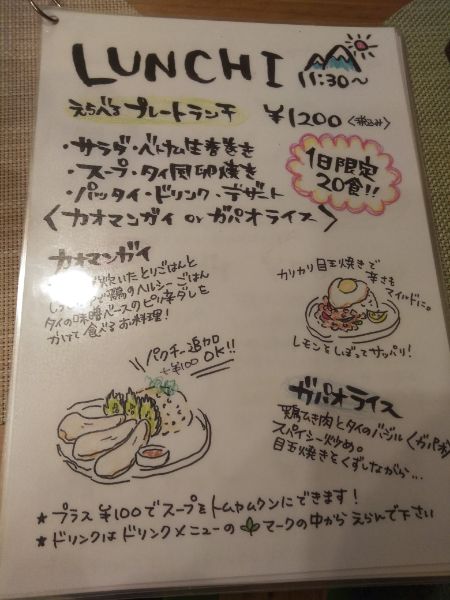 LUNCH!
11:30〜
えらべるプレートランチ ¥1200 〈税込み〉
・サラダ・ベトナム生春巻き
・スープ・タイ風卵焼き
・パッタイ・ドリンク・デザート
〈カオマンガイ or ガパオライス〉
1日限定
20食!!
カオマンガイ
炊いたとりごはんと
鶏のヘルシーごはん
タイの味噌ベースのピリ辛ダレを
かけて食べるお料理!
カリカリ目玉焼きで
辛さも
マイルドに。
レモンをしぼってサッパリ!
パクチー追加
+¥100 OK!!
ガパオライス
鶏ひき肉とタイのバジル〈ガパオ
スパイシー炒め。
目玉焼きをくずしながら…
★ プラス ¥100でスープをトムヤムクンにできます!
★ ドリンクはドリンクメニューの マークの中からえらんで下さい